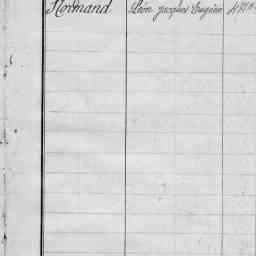 Normand Léon Jacques Eugène